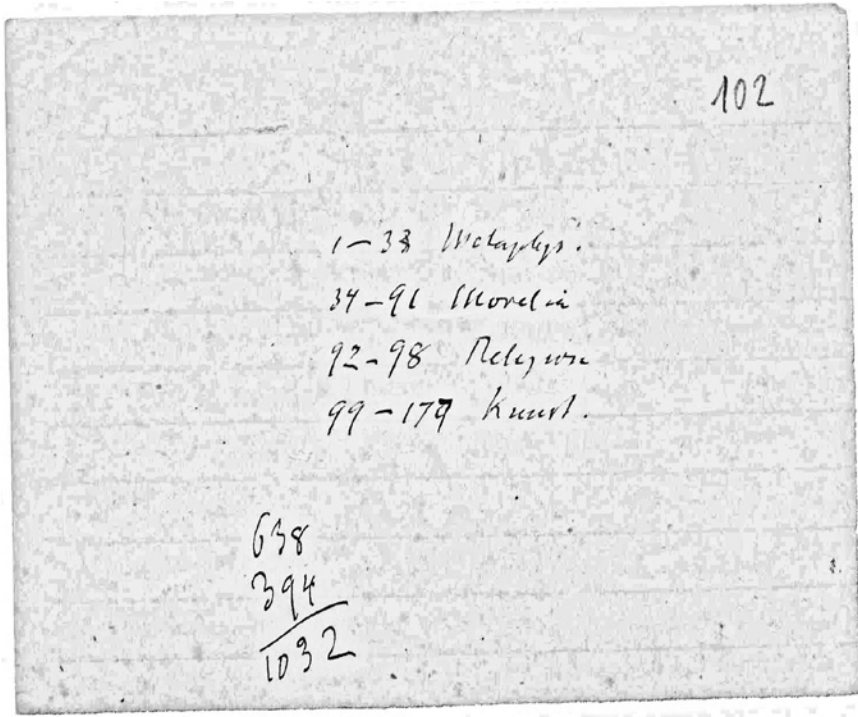 102
1–33 Metaphys.
34–91 Moralia
92–98 Religion
99–179 Kunst.
638
394
1032